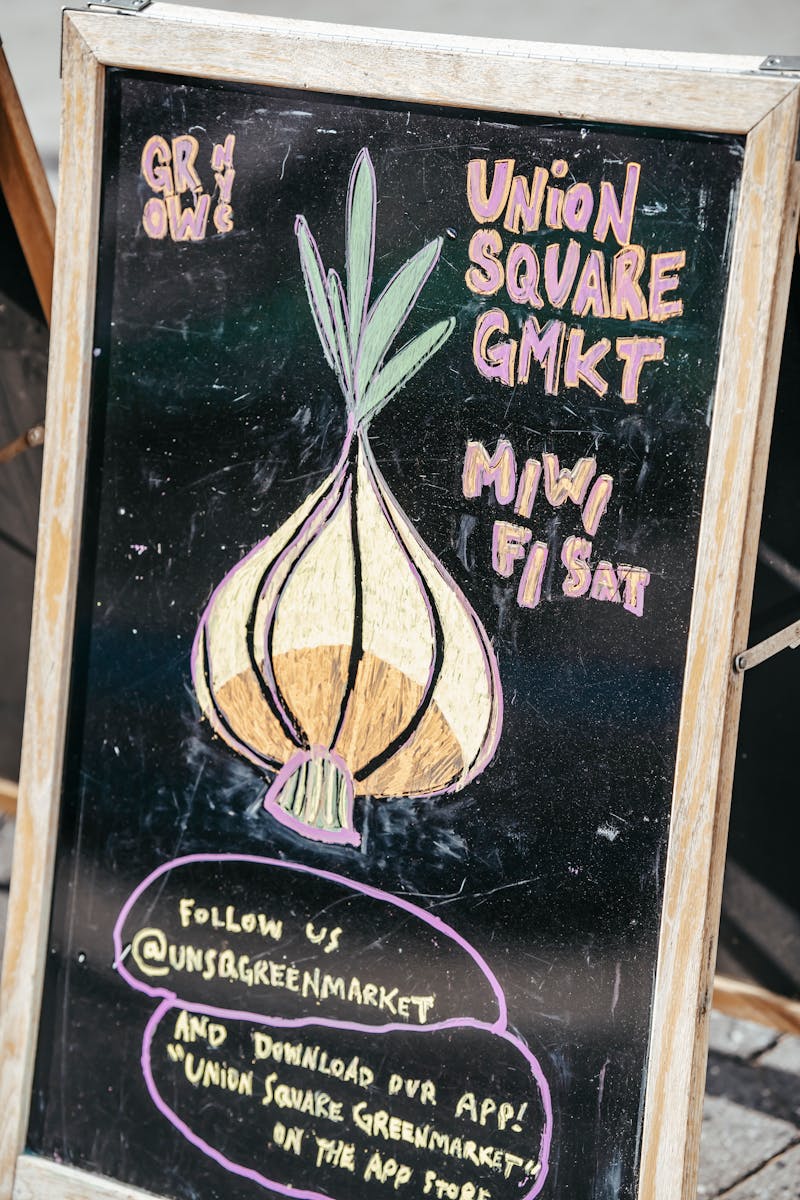 GR NYC
OW
UNiON
SQUARE
GMKT
M/W/
F/SAT
FOLLOW US
@UNSQGREENMARKET
AND DOWNLOAD OUR APP!
"UNION SQUARE GREENMARKET"
ON THE APP STORE